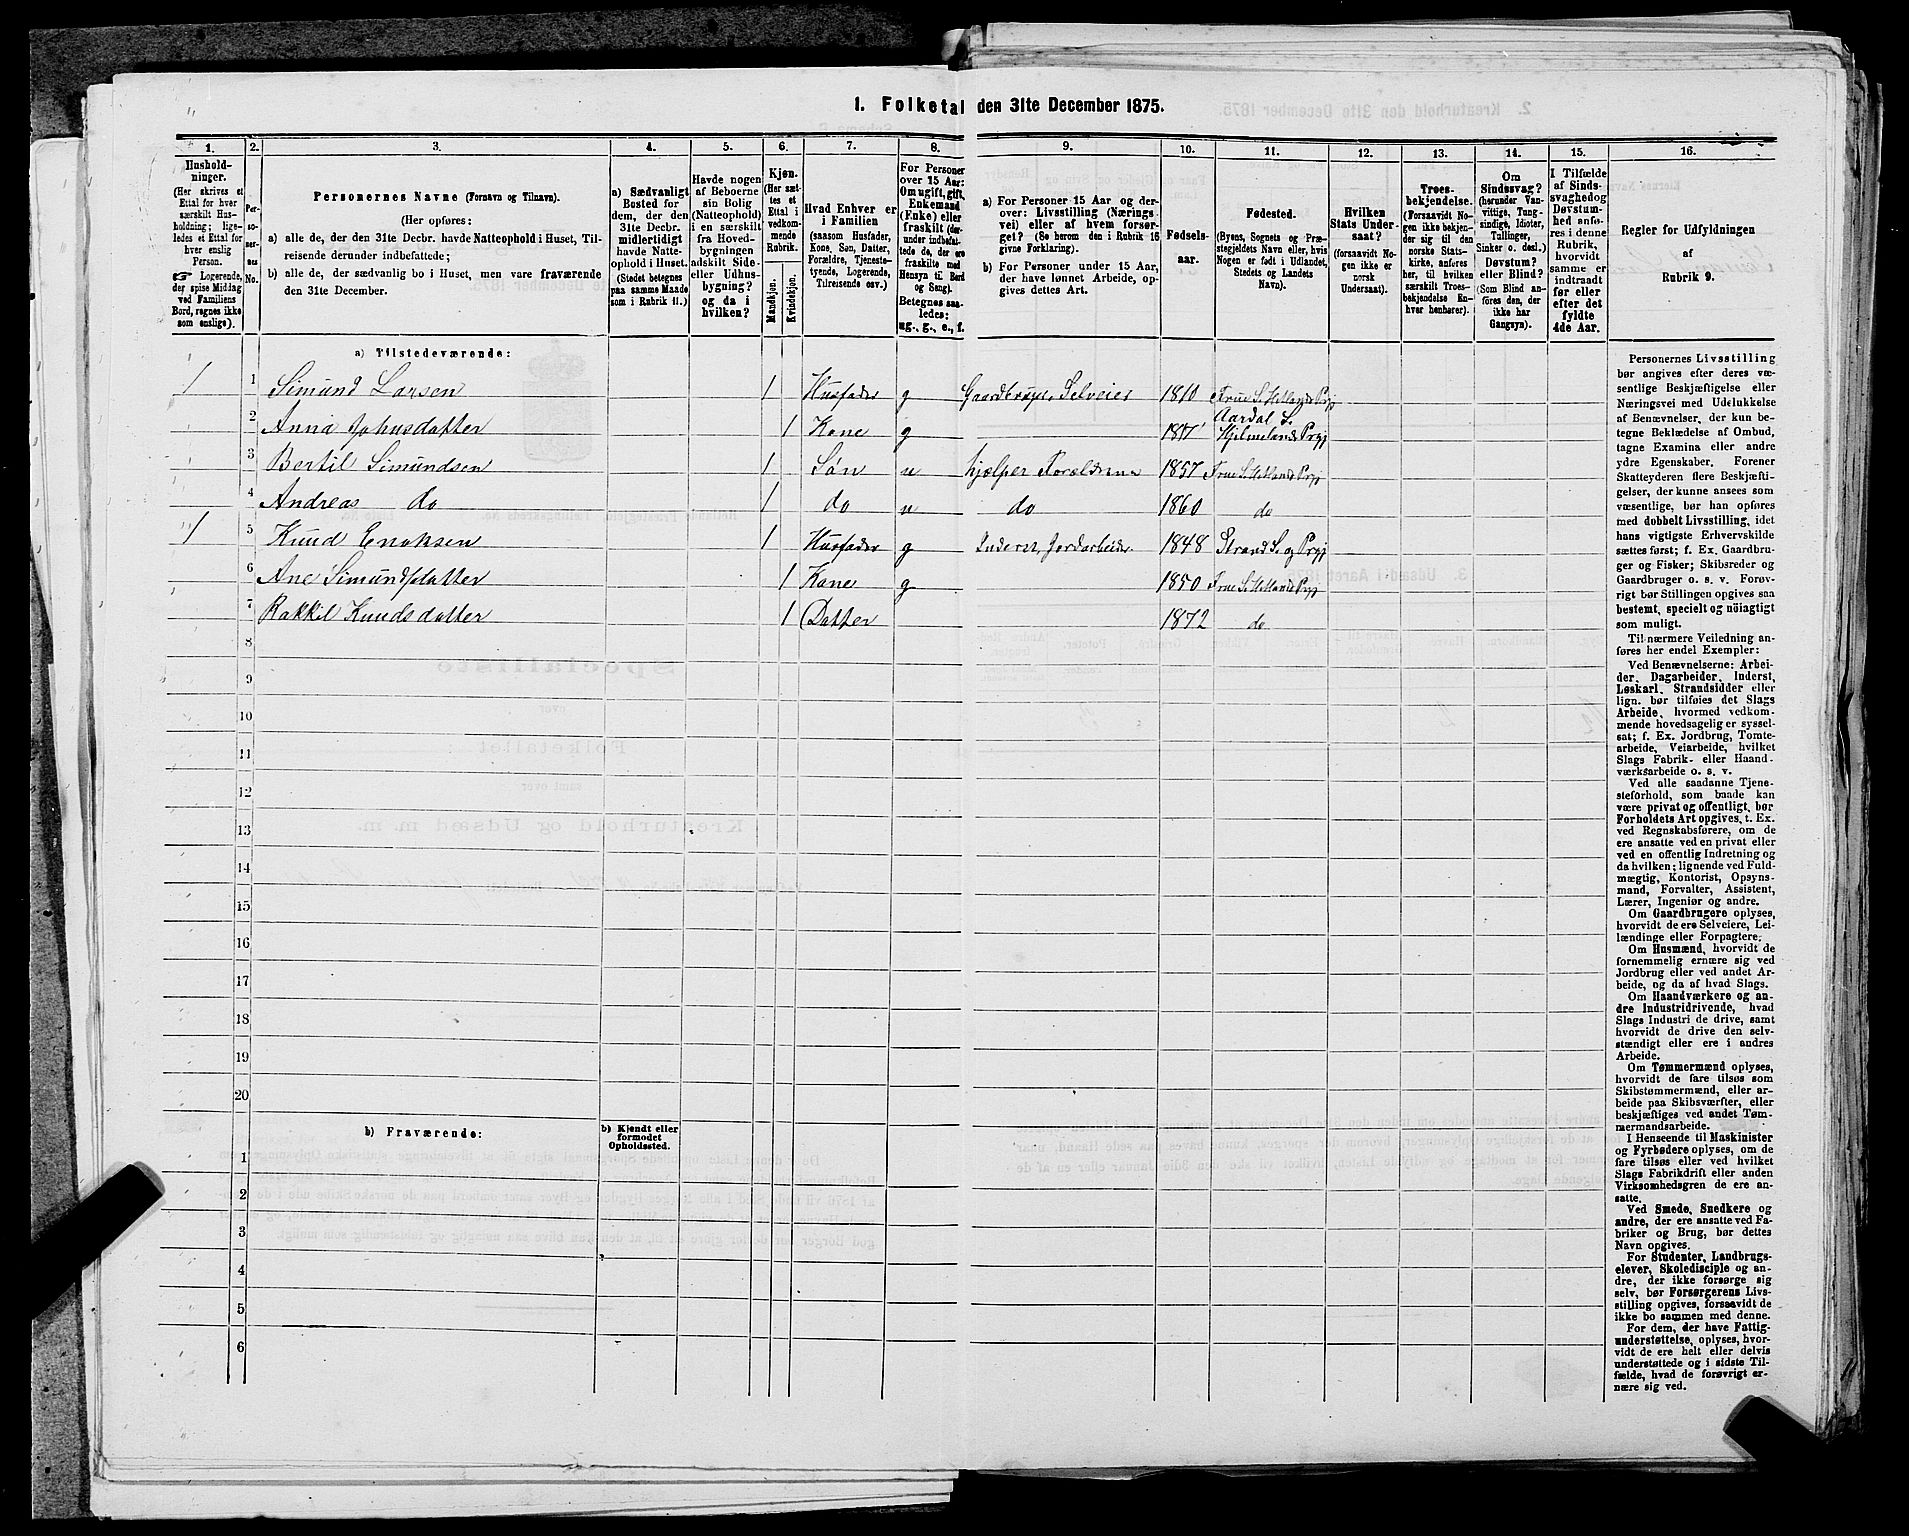 1. Folketal den 31te December 1875.
1. 2. 3. 4. 5. 6. 7. 8. 9. 10. 11. 12. 13. 14. 15. 16.
Hushold-
ninger.
(Her skrives et
Ettal for hver
særskilt Hus-
holdning; lige-
ledes et Ettal for
hver enslig
Person.
☞ Logerende,
der spise Middag
ved Familiens
Bord, regnes ikke
som enslige).
Per-
so-
ner-
nes
No.
Personernes Navne (Fornavn og Tilnavn).
(Her opføres:
a) alle de, der den 31te Decbr. havde Natteophold i Huset, Til-
reisende derunder indbefattede;
b) alle de, der sædvanlig bo i Huset, men vare fraværende
den 31te December.
a) Sædvanligt
Bosted for
dem, der den
31te Decbr.
midlertidigt
havde Natte-
ophold i Huset.
(Stedet betegnes
paa samme Maade
som i Rubrik 11.)
Havde nogen
af Beboerne
sin Bolig
(Natteophold)
i en særskilt
fra Hoved-
bygningen
adskilt Side-
eller Udhus-
bygning?
og da i
hvilken?
Kjøn.
(Her sæt-
tes et
Ettal i
vedkom-
mende
Rubrik.
Mandkjøn.
Kvindekjøn.
Hvad Enhver er
i Familien
(saasom Husfader,
Kone, Søn, Datter,
Forældre, Tjeneste-
tyende, Logerende,
Tilreisende osv.)
For Personer
over 15 Aar:
Om ugift, gift,
Enkemand
(Enke) eller
fraskilt (der-
under indbefat-
tede de, der ere
fraskilte med
Hensyn til Bord
og Seng).
Betegnes saa-
ledes:
ug., g., e., f.
a) For Personer 15 Aar og der-
over: Livsstilling (Nærings-
vei) eller af hvem forsør-
get? (Se herom den i Rubrik 16
givne Forklaring).
b) For Personer under 15 Aar,
der have lønnet Arbeide, op-
gives dettes Art.
Fødsels-
aar.
Fødested.
(Byens, Sognets og Præ-
stegjeldets Navn eller, hvis
Nogen er født i Udlandet,
Stedets og Landets
Navn).
Hvilken
Stats Under-
saat?
(forsaavidt No-
gen ikke er
norsk
Undersaat).
Troes-
bekjendelse.
(Forsaavidt No-
gen ikke bekjen-
der sig til den
norske Stats-
kirke, anføres
her, til hvilken
særskilt Troes-
bekjendelse En-
hver henhører).
Om
Sindssvag?
(herunder Van-
vittige, Tung-
sindige, Idioter,
Tullinger,
Sinker o. desl.)
Døvstum?
eller Blind?
(Som Blind an-
føres den, der
ikke har
Gangsyn).
I Tilfælde
af Sinds-
svaghed og
Døvstum-
hed anfø-
res i denne
Rubrik,
hvorvidt
samme er
indtraadt
før eller
efter det
fyldte
4de Aar.
Regler for Udfyldningen
af
Rubrik 9.
a) Tilstedeværende:
1 1 Simund Larsen 1 Husfader g Gaardbruger, Selveier 1810 Frue S. Hetlands Prgj
2 Anna Johusdatter 1 Kone g Aardal S. Hjelmelands Prgj
3 Bertil Simundsen 1 Søn u hjælper Forældrene 1857 Frue S. Hetlands Prgj
4 Andreas do 1 do u do 1860 do
1 5 Knud Enoksen 1 Husfader g Inderst, Jordarbeider 1848 Strand S. og Prgj
6 Ane Simundsdatter 1 Kone g 1850 Frue S. Hetlands Prgj
7 Rakkel Knudsdatter 1 Datter 1872 do
8
9
10
11
12
13
14
15
16
17
18
19
20
b) Fraværende:
b) Kjendt eller
formodet
Opholdssted.
1
2
3
4
5
6
Personernes Livsstilling
bør angives efter deres væ-
sentlige Beskjæftigelse eller
Næringsvei med Udelukkelse
af Benævnelser, der kun be-
tegne Beklædelse af Ombud,
tagne Examina eller andre
ydre Egenskaber. Forener
Skatteyderen flere Beskjæfti-
gelser, der kunne ansees som
væsentlige, bør han opføres
med dobbelt Livsstilling, idet
hans vigtigste Erhvervskilde
sættes først; f. Ex. Gaardbru-
ger og Fisker; Skibsreder og
Gaardbruger o. s. v. Forøv-
rigt bør Stillingen opgives saa
bestemt, specielt og nöiagtigt
som muligt.
Til nærmere Veiledning an-
føres her endel Exempler:
Ved Benævnelserne: Arbei-
der, Dagarbeider, Inderst,
Løskarl, Strandsidder eller
lign. bør tilføies det Slags
Arbeide, hvormed vedkom-
mende hovedsagelig er syssel-
sat; f. Ex. Jordbrug, Tomte-
arbeide, Veiarbeide, hvilket
Slags Fabrik- eller Haand-
værksarbeide o. s. v.
Ved alle saadanne Tjene-
steforhold, som baade kan
være privat og offentligt, bør
Forholdets Art opgives, t. Ex.
ved Regnskabsførere, om de
ere ansatte ved en privat eller
ved en offentlig Indretning og
da hvilken; lignende ved Fuld-
mægtig, Kontorist, Opsyns-
mand, Forvalter, Assistent,
Lærer, Ingeniør og andre.
Om Gaardbrugere oplyses,
hvorvidt de ere Selveiere, Lei-
lændinge eller Forpagtere;
Om Husmænd, hvorvidt de
fornemmelig ernære sig ved
Jordbrug eller ved andet Ar-
beide, og da af hvad Slags.
Om Haandværkere og an-
dre Industridrivende, hvad
Slags Industri de drive, samt
hvorvidt de drive den selv-
stændigt eller ere i andres
Arbeide.
Om Tømmermænd oplyses,
hvorvidt de fare tilsøs som
Skibstømmermænd, eller ar-
beide paa Skibsværfter, eller
beskjæftiges ved andet Tøm-
mermandsarbeide.
I Henseende til Maskinister
og Fyrbødere oplyses, om de
fare tilsøs eller ved hvilket
Slags Fabrikdrift eller anden
Virksomhedsgren de ere an-
satte.
Ved Smede, Snedkere og
andre, der ere ansatte ved Fa-
briker og Brug, bør dettes
Navn opgives.
For Studenter, Landbrugs-
elever, Skoledisciple og an-
dre, der ikke forsørge sig
selv, bør Forsørgerens Livs-
stilling opgives, forsaavidt de
ikke bo sammen med denne.
For dem, der have Fattig-
understøttelse, oplyses, hvor-
vidt de ere helt eller delvis
understøttede og i sidste Til-
fælde, hvad de forøvrigt er-
nære sig ved.